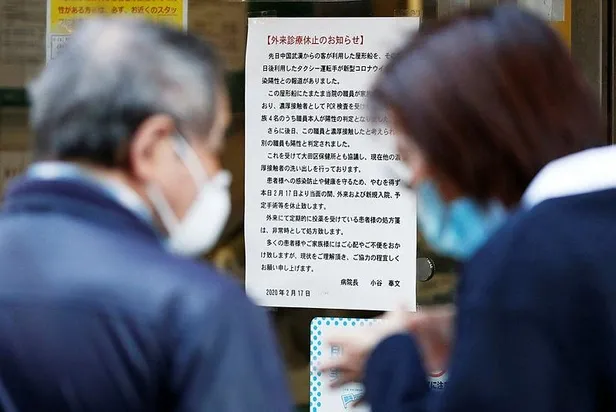 性があ
必ず、お近くのスタッ
【外来診療休止のお知らせ】
先日中国武漢からの客が利用した屋形船を、そ
日後利用したタクシー運転手が新型コロナウイ
染陽性との報道がありました。
この屋形船にたまたま当院の職員が家族
おり、濃厚接触者として PCR 検査を受け
族4名のうち職員本人が陽性の判定となりました。
さらに後日、この職員と濃厚接触したと考えられ
別の職員も陽性と判定されました。
これを受けて大田区保健所とも協議し、現在他の
厚接触者の洗い出しを行っております。
患者様への感染防止や健康を守るため、やむを得ず
本日2月17日より当面の間、外来および新規入院、予
定手術等を休止致します。
外来にて定期的に投薬を受けている患者様の処方箋
は、非常時として処方致します。
多くの患者様やご家族様にはご心配やご不便をおか
け致しますが、現状をご理解頂き、ご協力の程宜しく
お願い申し上げます。
病院長 小谷 奉文
2020年2月17日